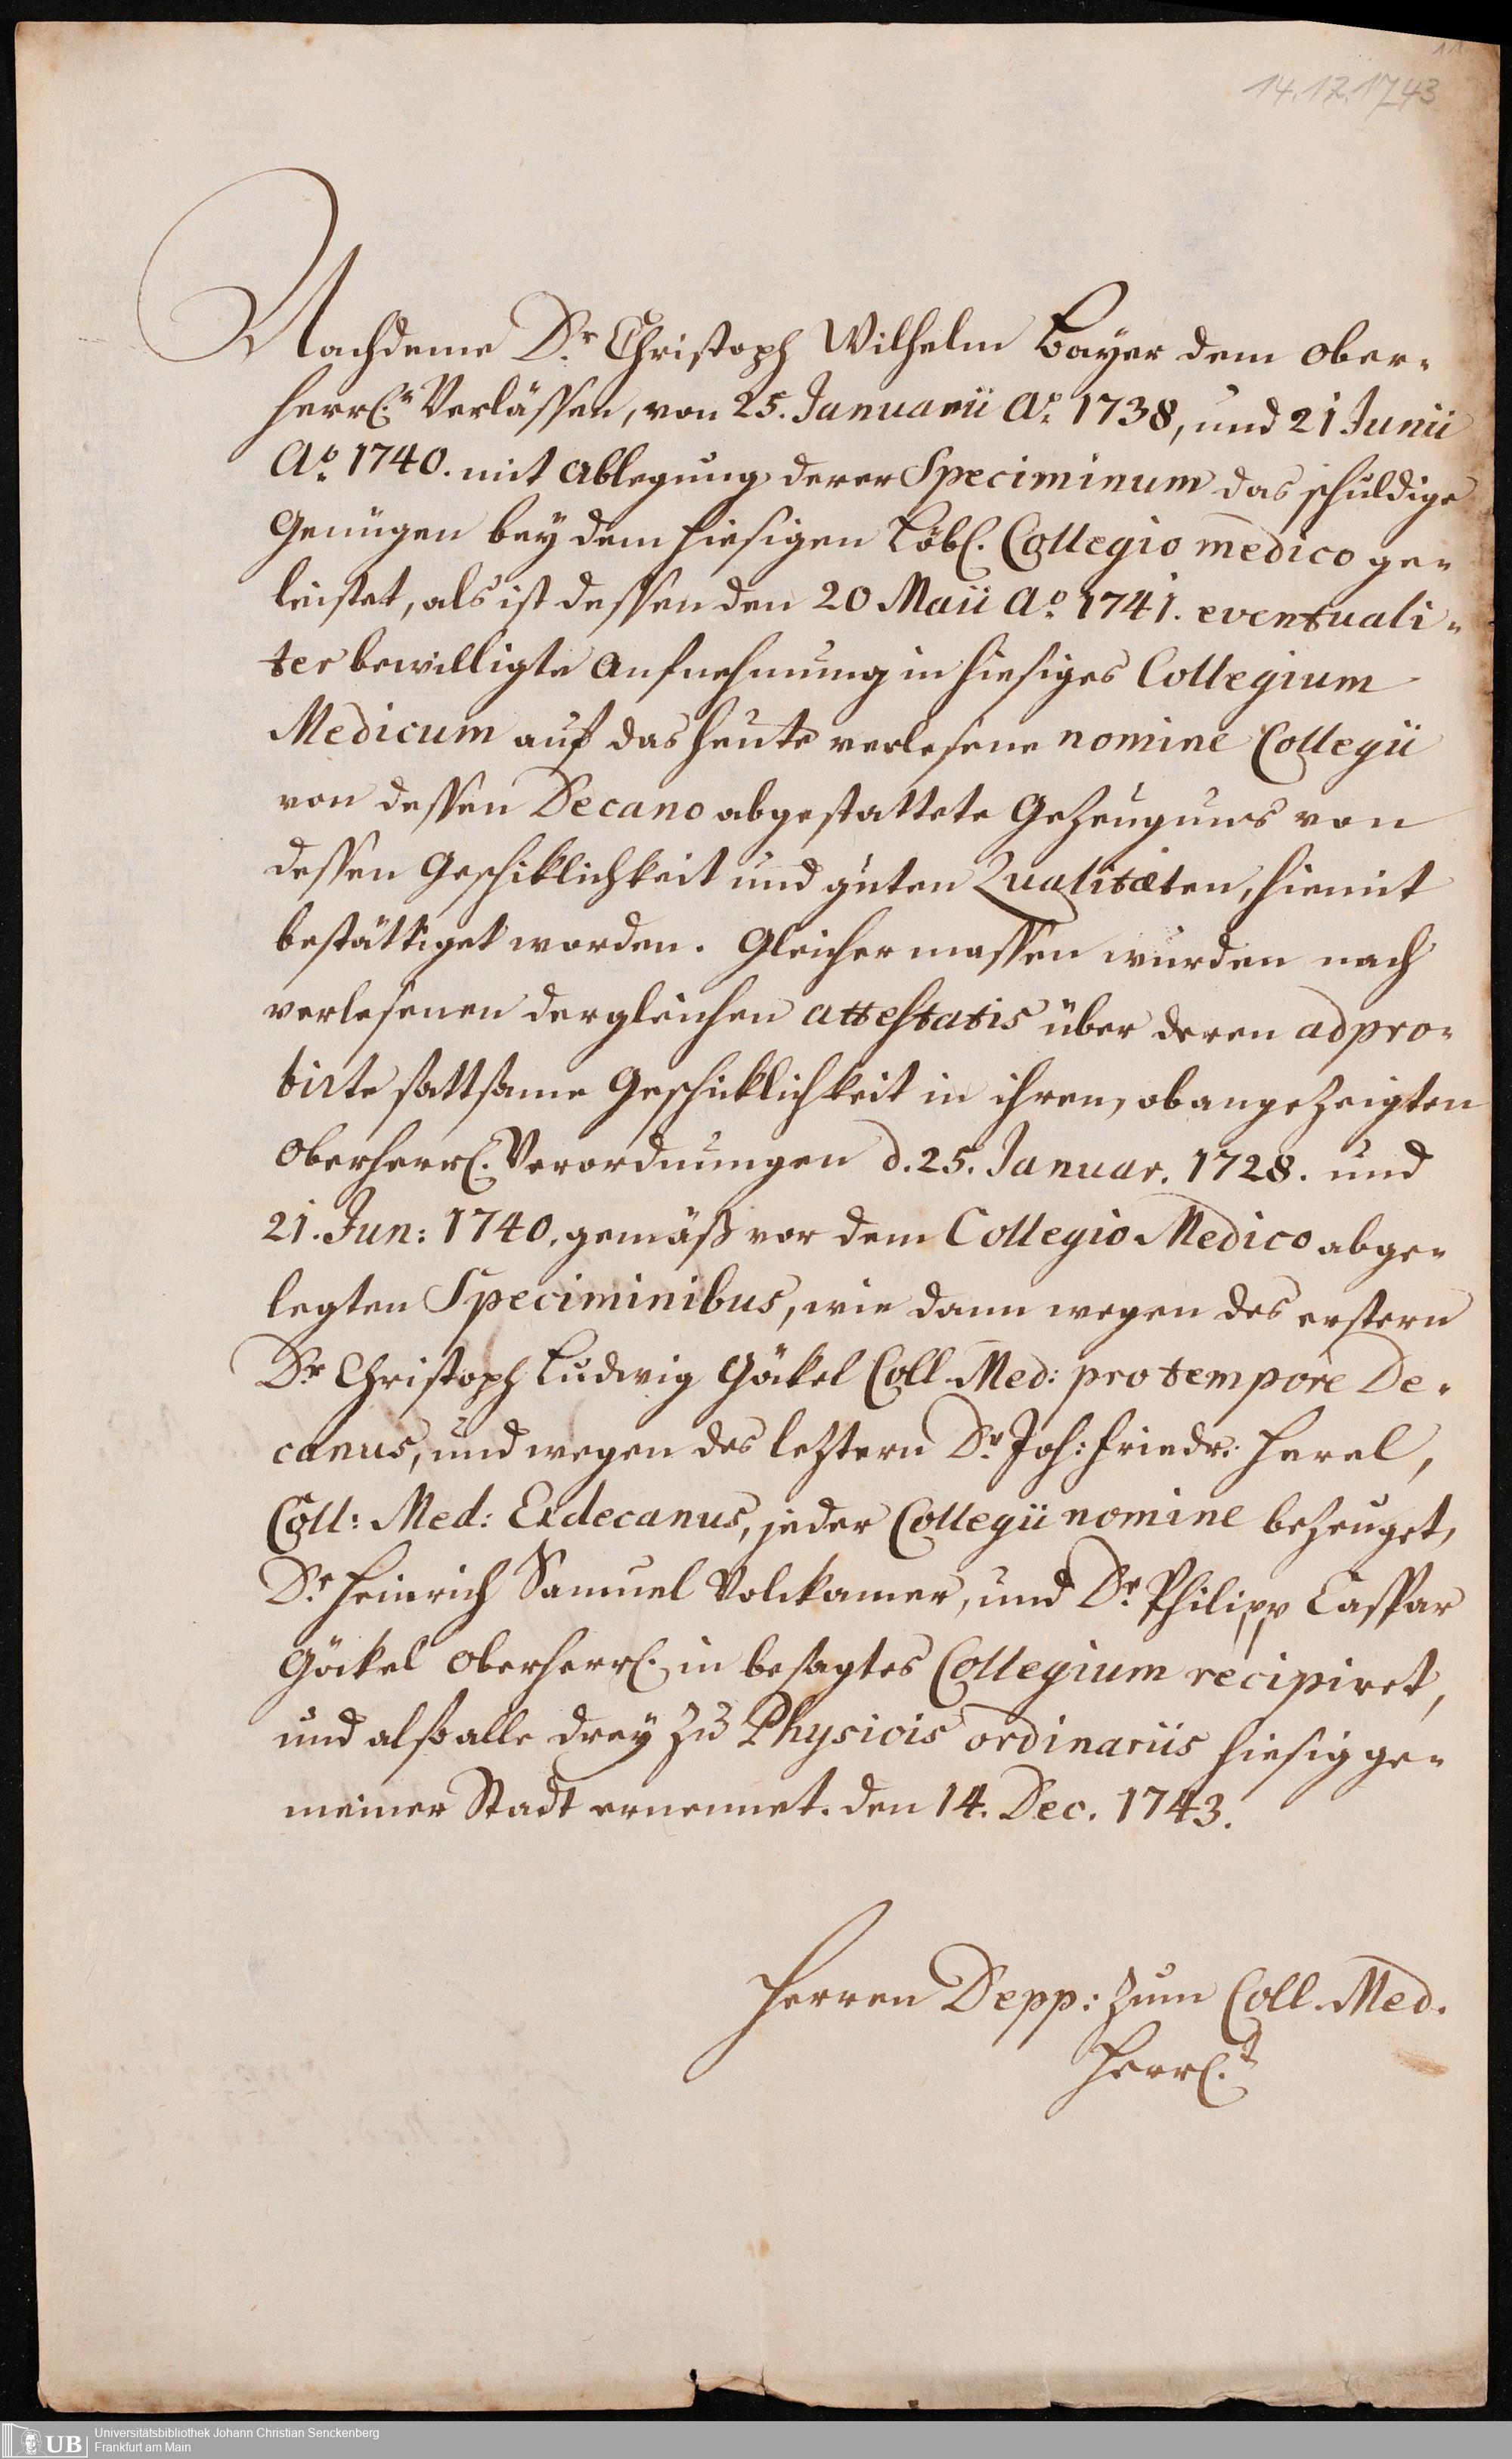 11
14.12.1743
Nachdeme Dr. Christoph Wilhelm Bayer dem Ober-
herrl.n Verlässen, von 25. Januarii Ao. 1738, und 21 Junii
Ao. 1740. mit Ablegung derer Speciminum das schuldige
Genügen bey dem hiesigen Löbl. Collegio medico ge-
leistet, als ist dessen den 20 Maii Ao. 1741. eventuali-
ter bewilligte Aufnehmung in hiesiges Collegium
Medicum auf das heute verlesene nomine Collegii
von dessen Decano abgestattete Gezeugnus von
dessen Geschiklichkeit und guten Qualitæten, hiemit
bestättiget worden. Gleichermassen wurden nach
verlesenen dergleichen attestatis über deren adpro-
birte sattsame Geschicklichkeit in ihren, obangezeigten
Oberherrl. Verordnungen d. 25. Januar. 1728. und
21. Jun: 1740. gemäß vor dem Collegio Medico abge-
legten Speciminibus, wie dann wegen des erstern
Dr. Christoph Ludwig Göckel Coll. Med: pro tempore De-
canus, und wegen des leztern Dr. Joh: Friedr: Herel,
Coll: Med: Exdecanus, jeder Collegii nomine bezeuget,
Dr. Heinrich Samuel Volckamer, und Dr. Philipp Caspar
Göckel Oberherrl. in besagtes Collegium recipiret,
und also alle drey zu Physicis ordinariis hiesig ge-
meiner Stadt ernennet. den 14. Dec. 1743.
Herren Depp: zum Coll. Med.
Herrl.t
UB
Universitätsbibliothek Johann Christian Senckenberg
Frankfurt am Main